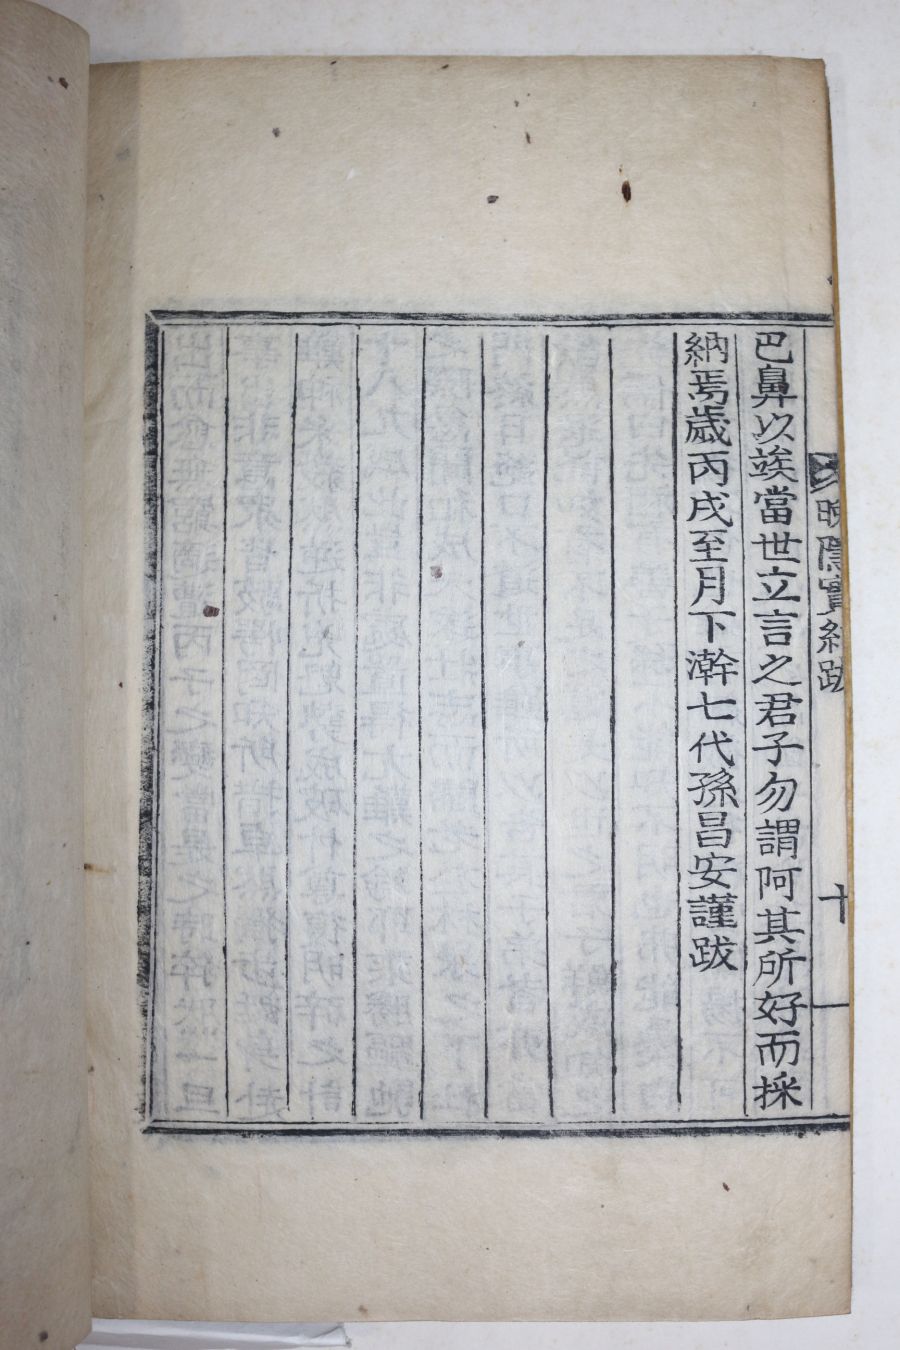 晚隱實紀跋
十一
巴鼻以竢當世立言之君子勿謂阿其所好而採
納焉歲丙戌至月下澣七代孫昌安謹跋